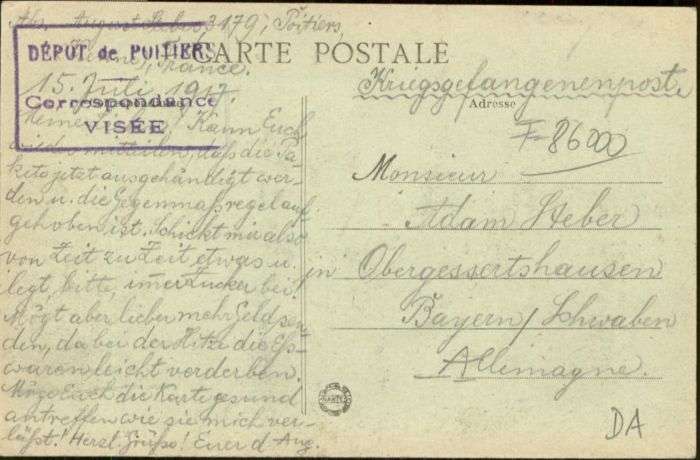 Abs. August Heber 3179, Poitiers,
Vienne, France.
CARTE POSTALE
DÉPÔT de POITIERS
Correspondance
VISÉE
15. Juli 1917.
Kann Euch
mitteilen, daß die Pa-
kete jetzt ausgehändigt wer-
den u. die Gegenmaßregel auf-
gehoben ist. Schickt mir also
von Zeit zu Zeit etwas u.
legt, bitte, immer Zucker bei!
Mögt aber lieber mehr Geld sen-
den, da bei der Hitze die Eß-
waren leicht verderben.
Möge Euch die Karte gesund
antreffen wie sie mich ver-
läßt! Herzl. Grüße! Euer d. Aug.
Kriegsgefangenenpost.
Adresse
F-86000
Monsieur
Adam Heber
in Obergessertshausen
Bayern/Schwaben
Allemagne.
DA